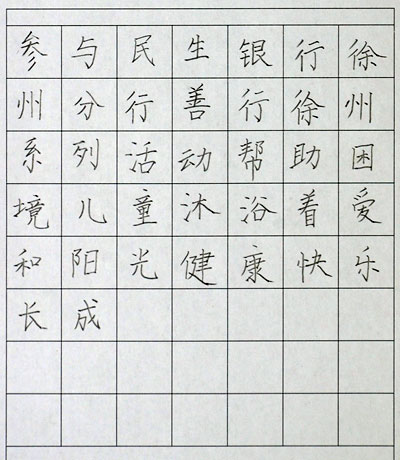 参与民生银行徐
州分行善行徐州
系列活动帮助困
境儿童沐浴着爱
和阳光健康快乐
长成